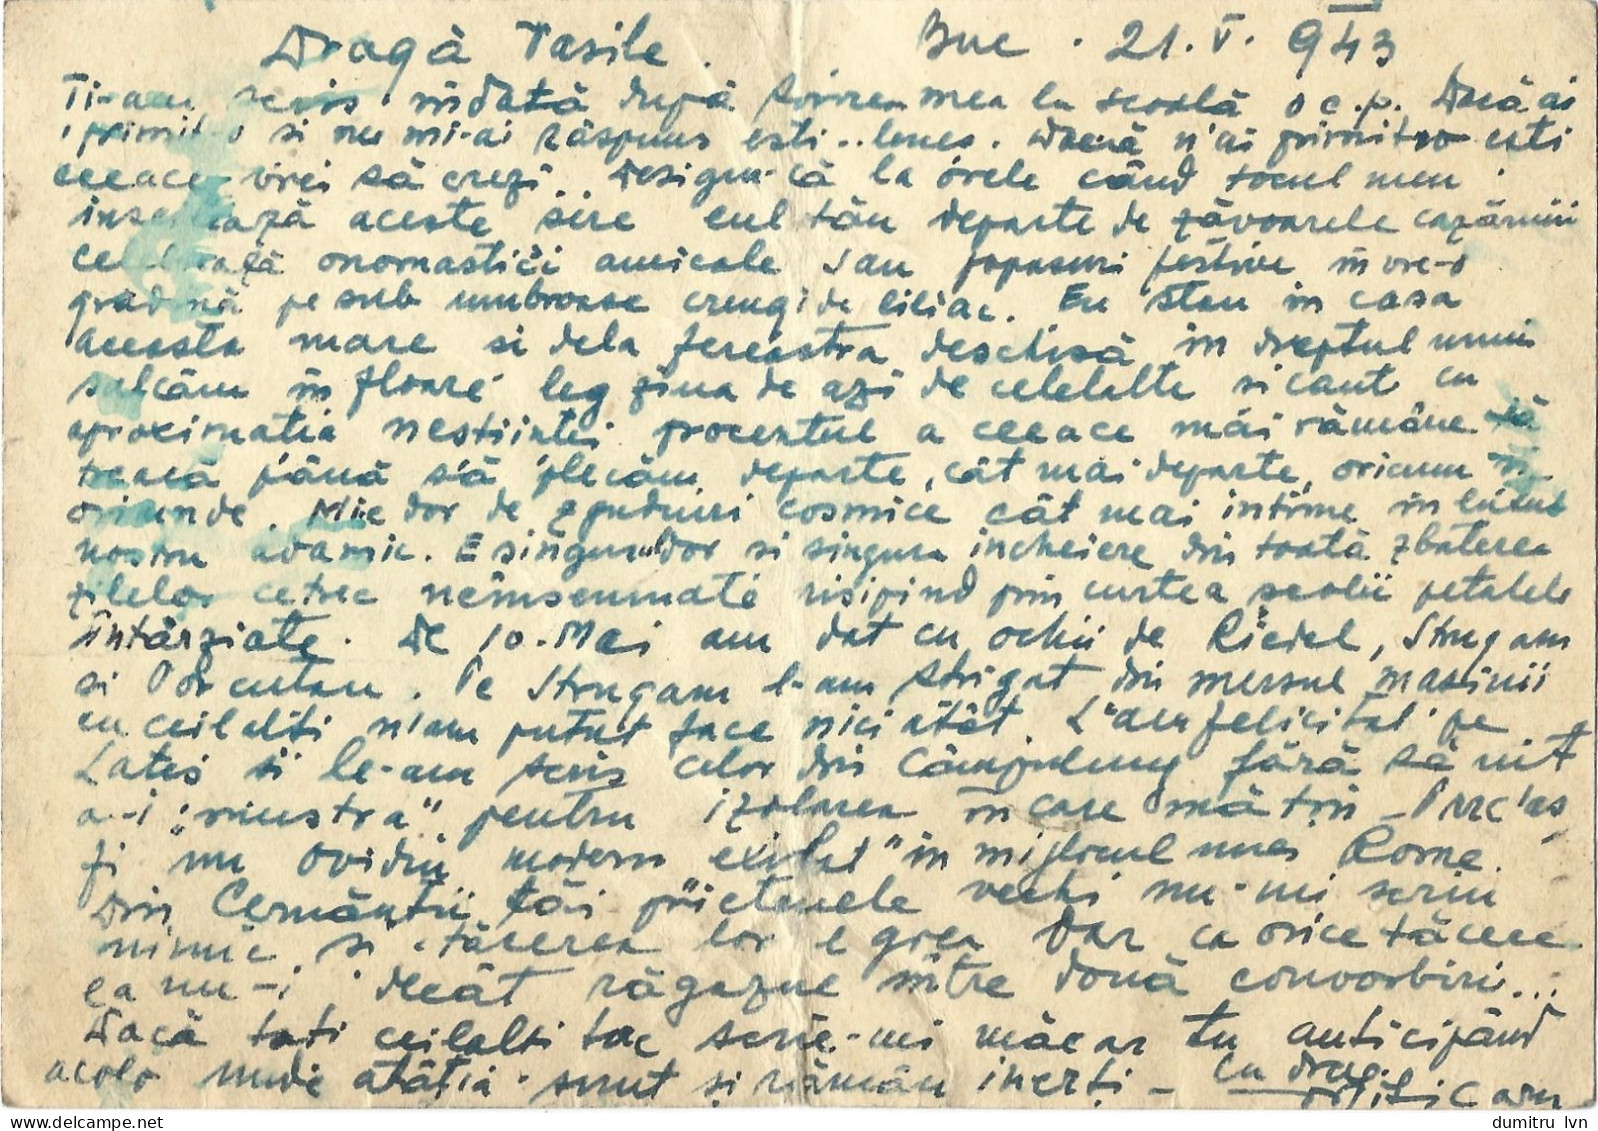 Dragă Vasile.
Buc. 21.V.943
Ti-am scris îndată după sosirea mea la școală o c.p. Dacă ai
primit-o si nu mi-ai răspuns esti.. lenes. Dacă n'ai primit-o esti
ceeace vrei să crezi.. Desigur că la orele când tocul meu
insenează aceste sire eul tău departe de zăvoarele cazărmii
celebrază onomastici amicale sau popasuri festive in vre-o
grădină pe sub umbroase crengi de liliac. Eu stau in casa
aceasta mare si dela fereastra deschisă in dreptul unui
salcâm in floare leg ziua de azi de celelalte si caut cu
aproximatia nestiintei procentul a ceeace mai rămâne să
treacă până să plecăm departe, cât mai departe, oricum si
oriunde. Mie dor de zguduiri cosmice cât mai intime in lutul
nostru adamic. E singurul dor si singura incheiere din toată zbaterea
zilelor ce trec neînsemnate risipind prin curtea scolii petalele
întârziate. De 10. Mai am dat cu ochii de Riedel, Strugam
si Porcutan. Pe Strugam l-am strigat din mersul masinii
cu ceilalti n'am putut face nici atât. L'am felicitat pe
Latis si le-am scris celor din Câmpulung fără să uit
a-i "mustra" pentru izolarea in care mă tin - Parc'as
fi un Ovidiu modern exilat in mijlocul unei Rome.
Din Cernăuti prietenele vechi nu-mi scriu
nimic si tăcerea lor e grea Dar ca orice tăcere
ea nu-i decât răgazue între două convorbiri...
Dacă toti ceilalti tac scrie-mi măcar tu anticipând
acolo unde atâtia sunt și rămân inerți -
Cu drag